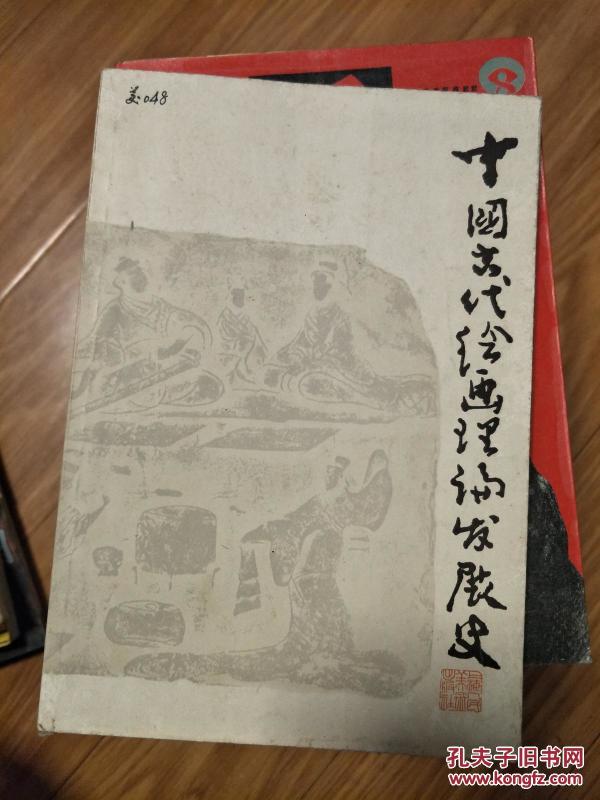 美048
8
中國古代绘画理論发展史
孔夫子旧书网
www.kongfz.com